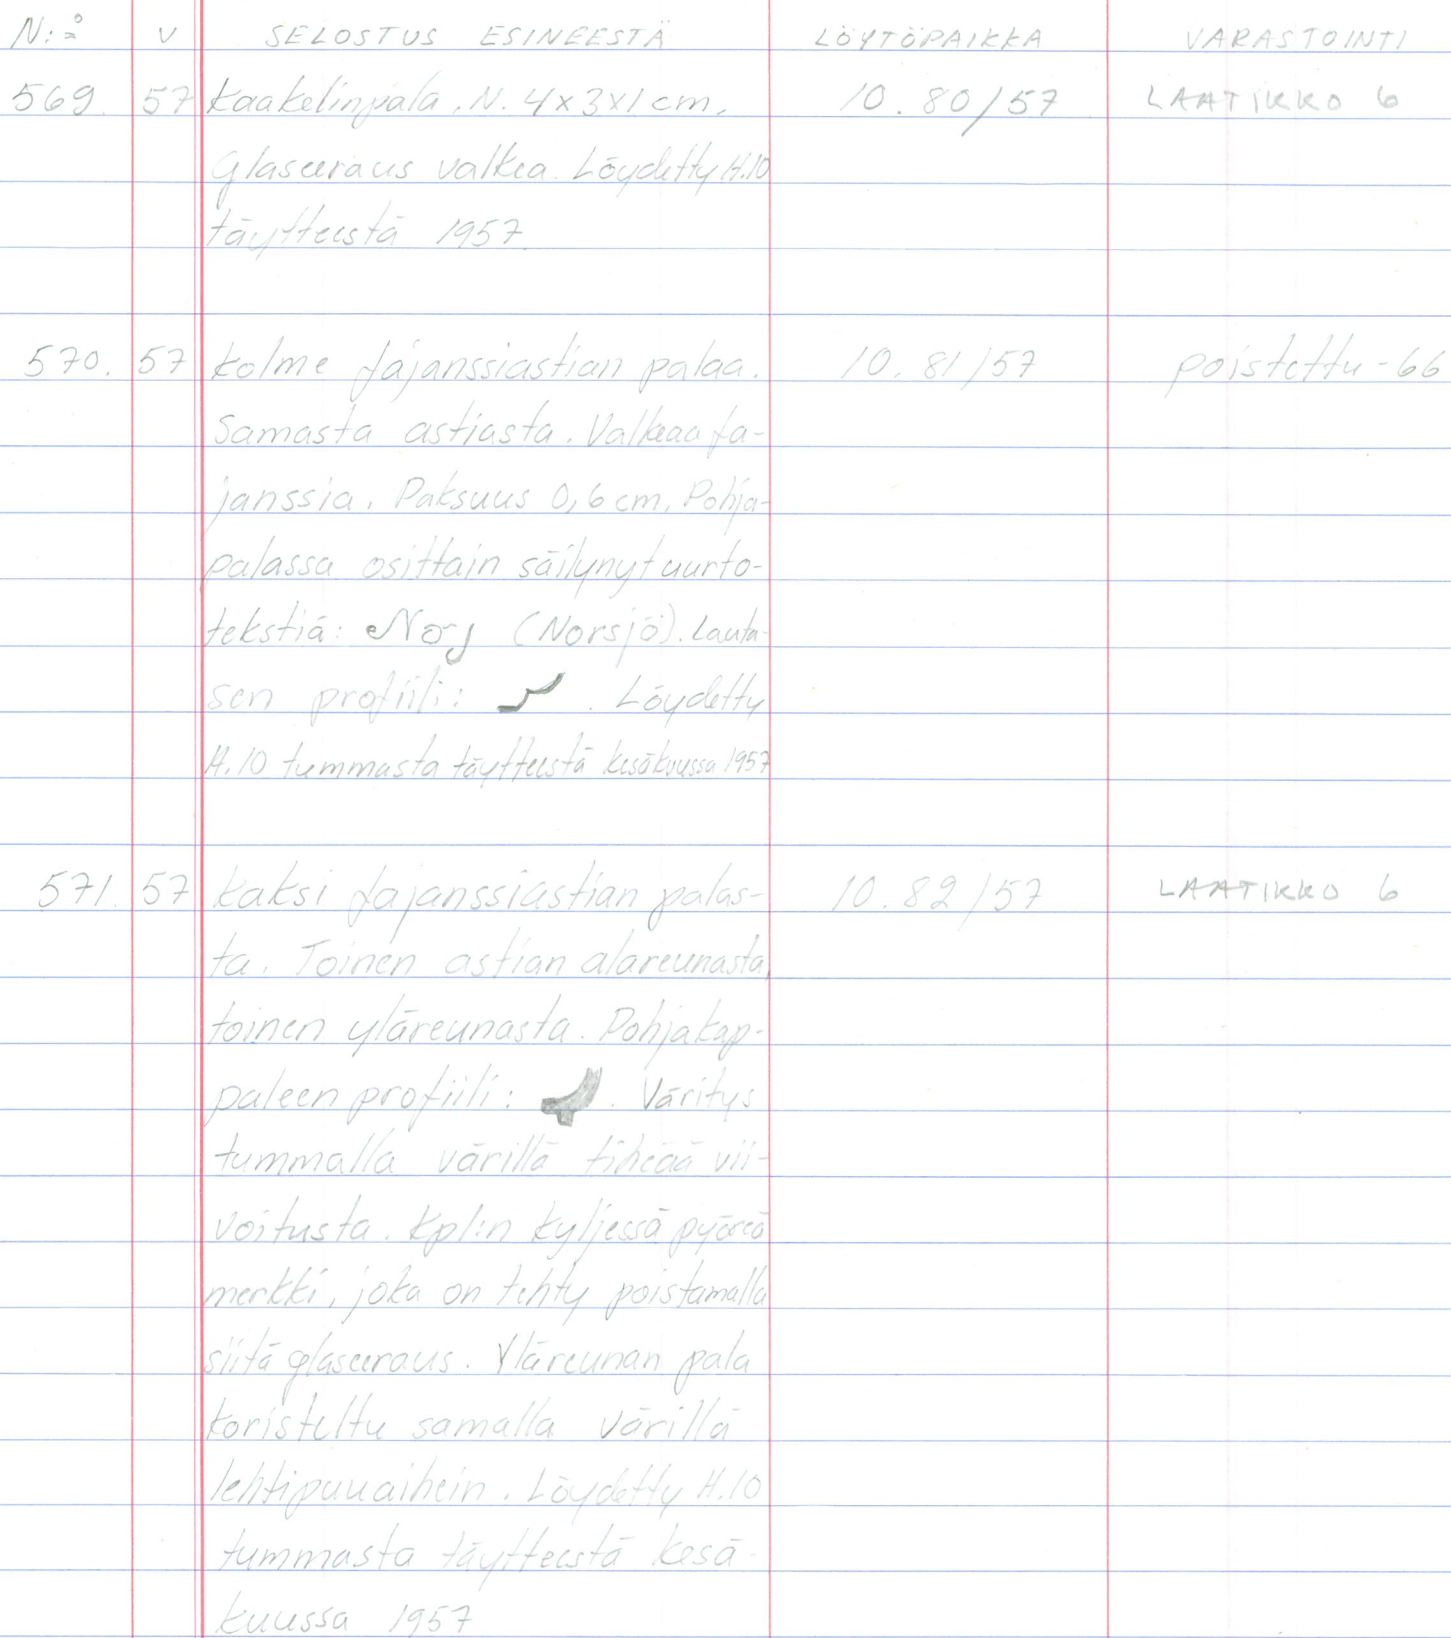 N:o V SELOSTUS ESINEESTÄ LÖYTÖPAIKKA VARASTOINTI
569. 57 Kaakelinpala. N. 4x3x1 cm. 10.80/57 LAATIKKO 6
Glaseeraus valkea. Löydetty H.10
täytteestä 1957
570. 57 Kolme fajanssiastian palaa. 10.81/57 poistettu -66
Samasta astiasta. Valkeaa fa-
janssia. Paksuus 0,6 cm. Pohja-
palassa osittain säilynyt uurto-
tekstiä: Noj (Norsjö). Lauta-
sen profiili: . Löydetty
H.10 tummasta täytteestä kesäkuussa 1957
571. 57 Kaksi fajanssiastian palas- 10.82/57 LAATIKKO 6
ta. Toinen astian alareunasta,
toinen yläreunasta. Pohjakap-
paleen profiili: . Väritys
tummalla värillä tiheää vii-
voitusta. Kpl:n kyljessä pyöreä
merkki, joka on tehty poistamalla
siitä glaseeraus. Yläreunan pala
koristeltu samalla värillä
lehtipuuaihein. Löydetty H.10
tummasta täytteestä kesä-
kuussa 1957